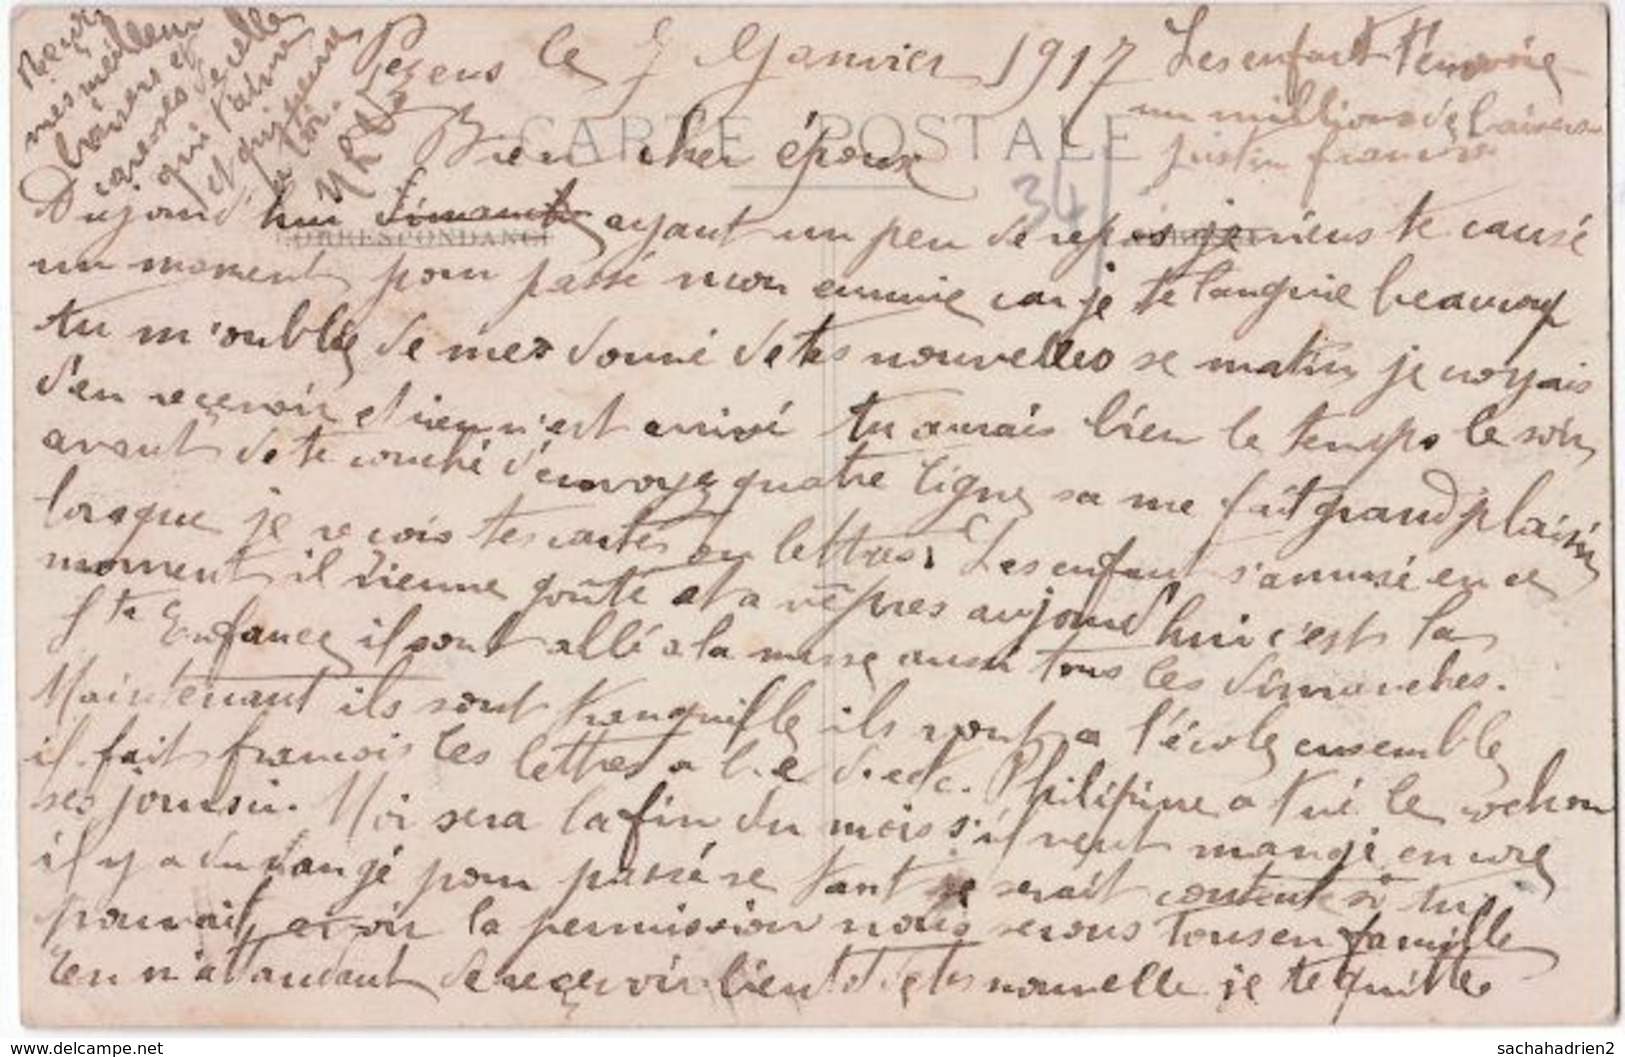 Pezens le 7 Janvier 1917
Bien cher époux
CARTE POSTALE
CORRESPONDANCE
34
Dujourd'hui dimanche ayant un peu de repos je viens te causé
un moment pour passé mon ennuie car je te languie beaucoup
tu m'oublie de me donné de tes nouvelles se matin je croyais
d'en reçevoir et rien n'est arrivé tu aurais bien le temps le soir
avant de te couché d'envoye quatre ligne sa me fait grand plaisir
lorsque je recois tes cartes ou lettres. Les enfant s'amuse en ce
moment il vienne goûte et a vêpres aujourd'hui c'est la
Ste Enfance il sont allé a la messe aussi tous les dimanches.
Maintenant ils sont tranquille ils vont a l'école ensemble
il fait francois les lettres a b.c d. edc. Philipine a tué le cochon
ses jours si. Moi sera la fin du mois s'il veut mangé encore
il y a du dangé pour passé se tant je serait contente si tu
pouvait avoir la permission nous serons tous en famille
En n'attandant de reçevoir bientot de tes nouvelle je te quitte
Reçoi
mes meilleur
baisers et
caresses de celle
qui t'aime
et qui pense
a toi.
Les enfant t'envoie
un millions de baisers
justin francois.
www.delcampe.net
sachahadrien2